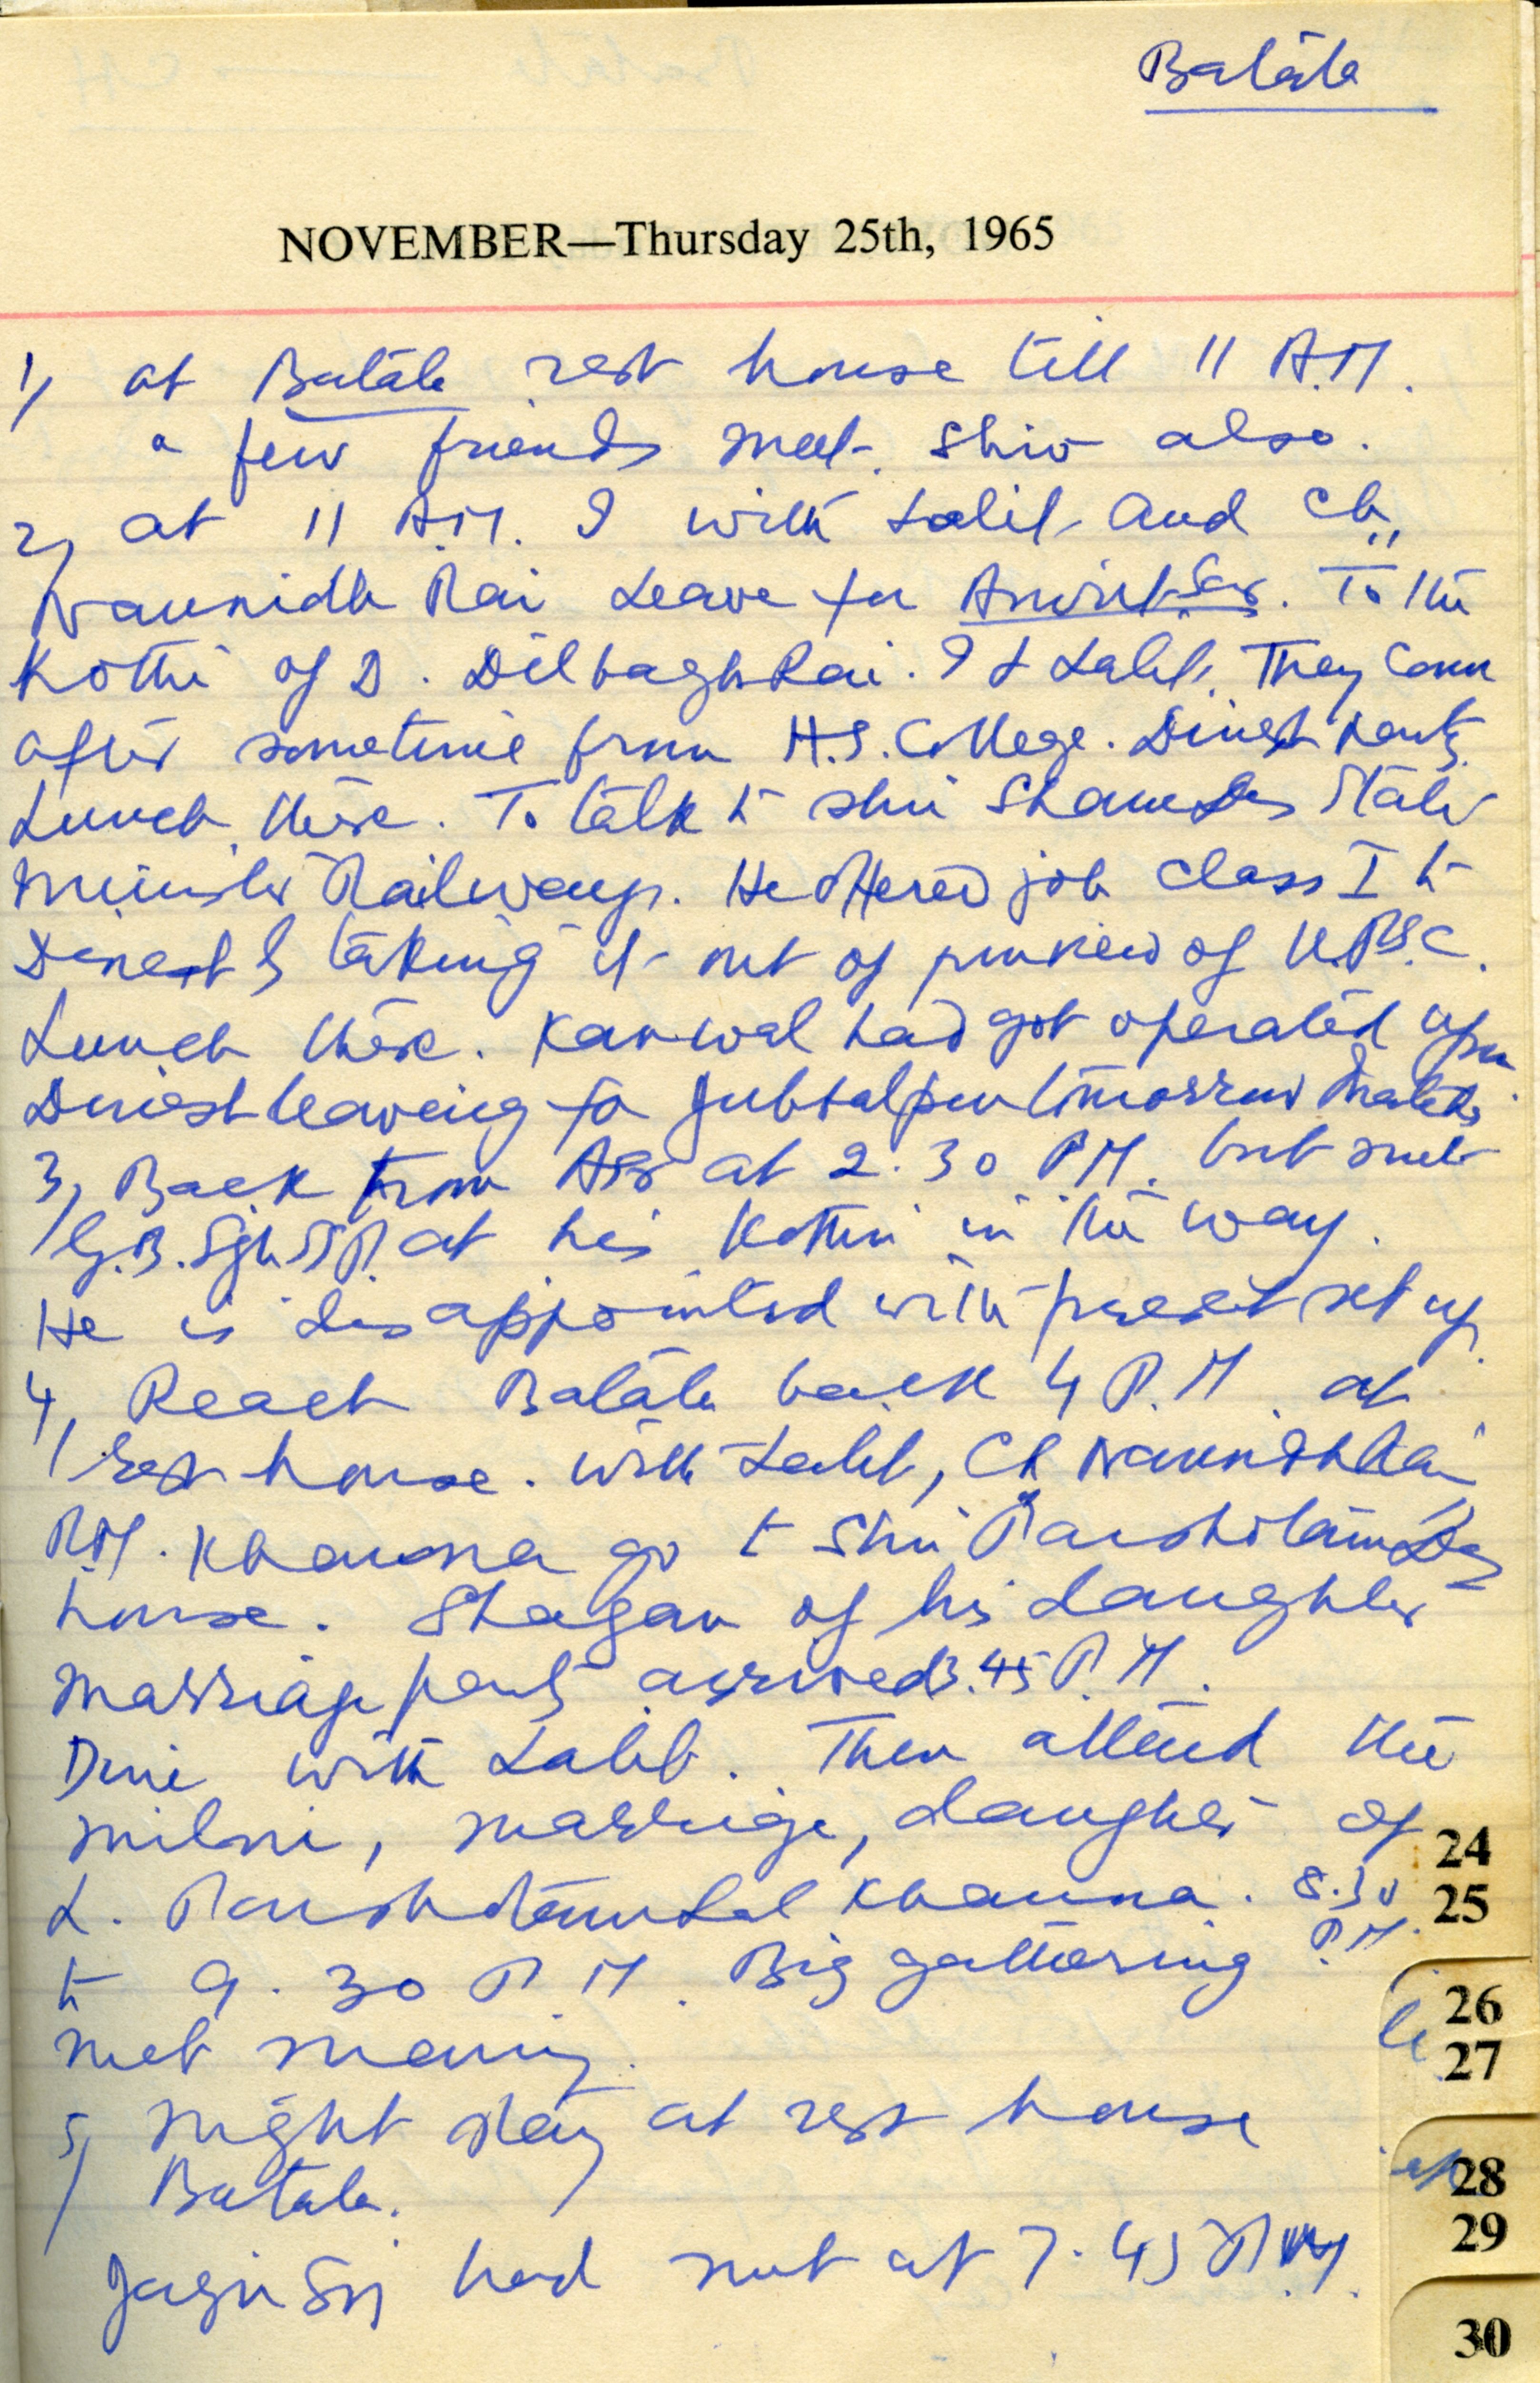 Batala
NOVEMBER—Thursday 25th, 1965
1) at Batala rest house till 11 A.M.
a few friends meet. Shiv also.
2) at 11 A.M. I with Lalit and Ch.
Naunidh Rai leave for Amritsar. To the
Kothi of D. Dilbagh Rai. I & Lalit. They come
after sometime from H.S. College. Dinesh
Lunch there. To talk to Shri Sham State
Minister Railways. He offered job class I to
Dinesh by taking it out of purview of U.P.S.C.
Lunch there. Kanwal had got operated upon
Dinesh leaving for Jubbalpur tomorrow
3) Back from ASR at 2.30 P.M. but met
G.B. Sgh S.P. at his Kothi in the way.
He is disappointed with present set up.
4) Reach Batala back 4 P.M. at
rest house. With Lalit, Ch Naunidh Rai
R.M. Khanna go to Shri Parshotam Das
house. Shagan of his daughter
Marriage party arrived 3.45 P.M.
Dine with Lalit. Then attend the
milni, marriage, daughter of
L. Parshotam Lal Khanna. 8.30
P.M.
to 9.30 P.M. Big gathering
met many.
5) Night stay at rest house
Batala.
had met at 7.45 P.M.
24
25
26
27
28
29
30